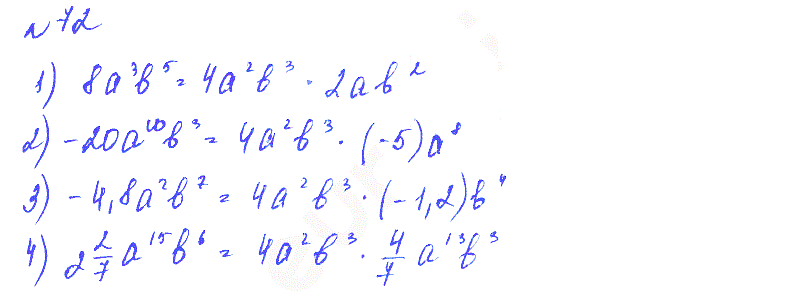 № 72
1) 8a³b⁵ = 4a²b³ · 2ab²
2) -20a¹⁰b³ = 4a²b³ · (-5)a⁸
3) -4,8a²b⁷ = 4a²b³ · (-1,2)b⁴
4) 2 2/7 a¹⁵b⁶ = 4a²b³ · 4/7 a¹³b³